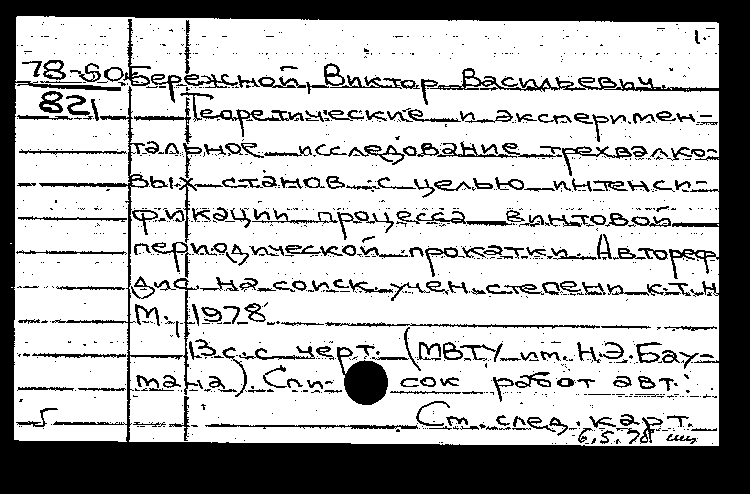 1.
78-50 Бережной, Виктор Васильевич.
821 Теоретические и эксперимен-
тальное исследование трехвалко-
вых станов с целью интенси-
фикации процесса винтовой
периодической прокатки. Автореф.
дис. на соиск. учен. степени к.т.н
М., 1978
13 с. с черт. (МВТУ им. Н.Э.Бау-
мана). Спи- сок работ авт.:
5 Ст. след. карт.
6.5.78